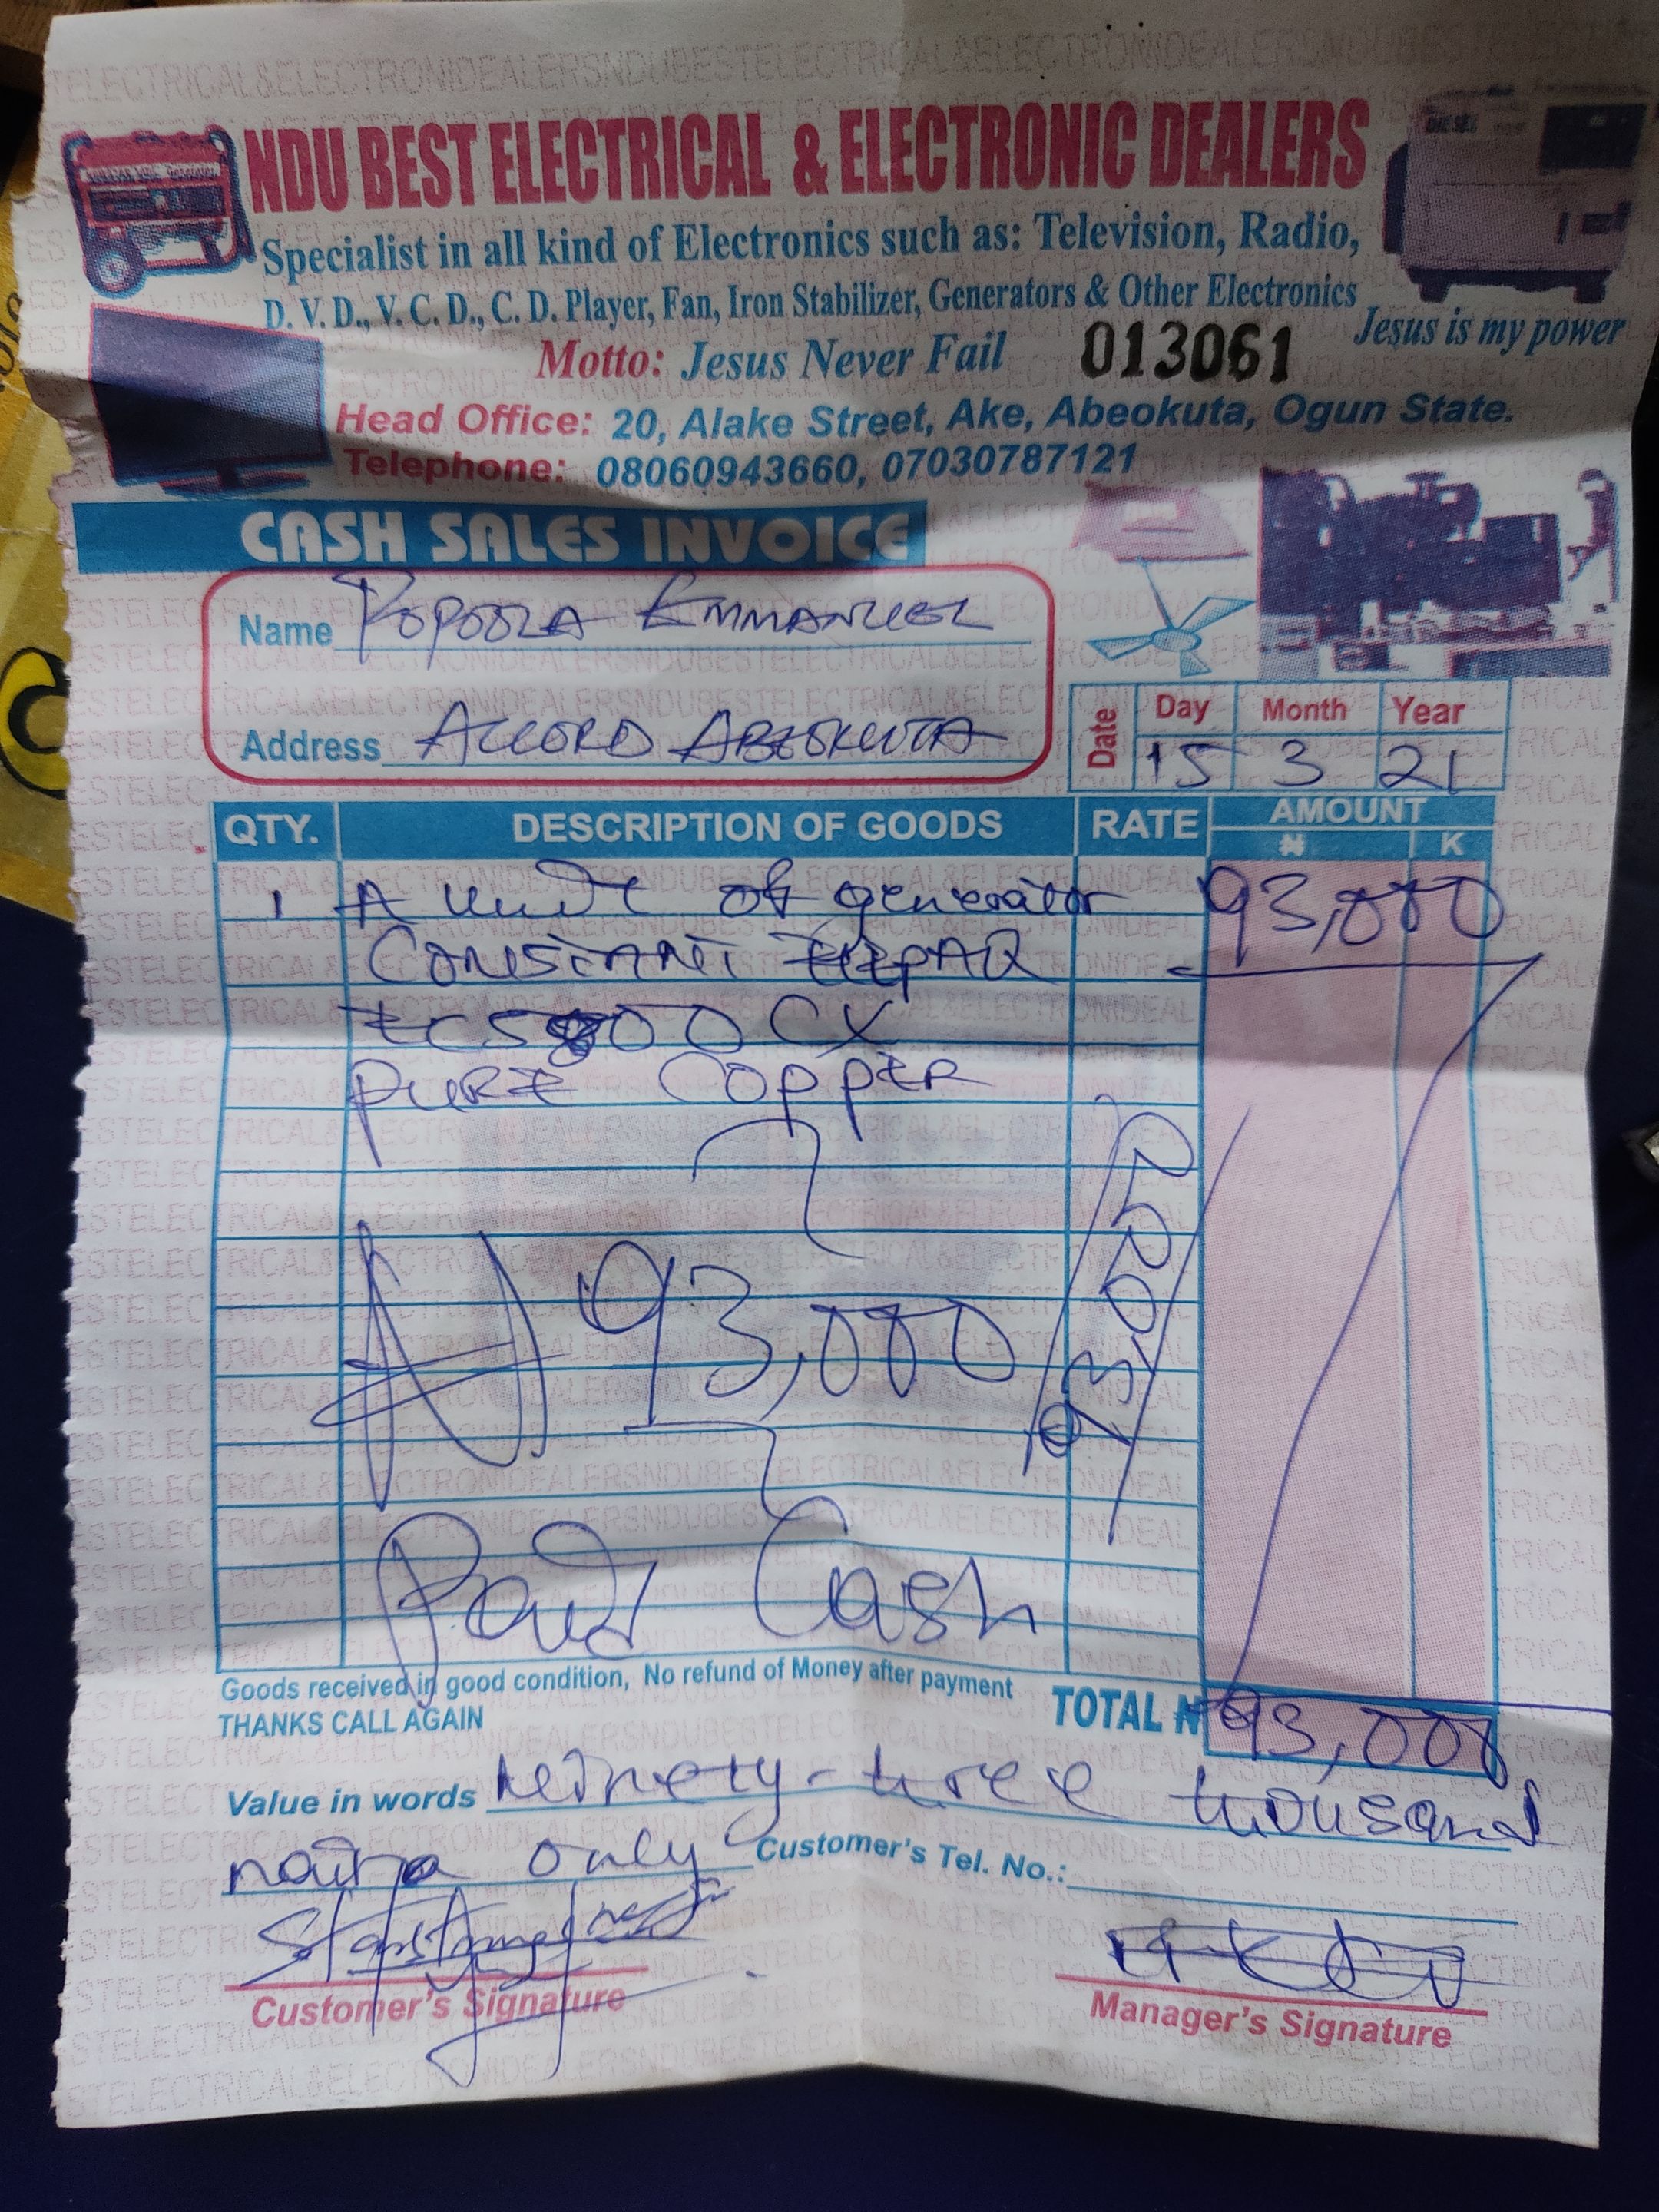 NDU BEST ELECTRICAL & ELECTRONIC DEALERS
Specialist in all kind of Electronics such as: Television, Radio,
D. V. D., V. C. D., C. D. Player, Fan, Iron Stabilizer, Generators & Other Electronics
Jesus is my power
Motto: Jesus Never Fail 013061
Head Office: 20, Alake Street, Ake, Abeokuta, Ogun State.
Telephone: 08060943660, 07030787121
CASH SALES INVOICE
Name POPOOLA EMMANUEL
Address ACCORD ABEOKUTA
Date Day Month Year
15 3 21
QTY. DESCRIPTION OF GOODS RATE AMOUNT
₦ K
1 A unit of generator 93,000
CONSTANT
5800CX
PURE COPPER
₦93,000
93,000
Paid Cash
Goods received in good condition, No refund of Money after payment
THANKS CALL AGAIN
TOTAL ₦ 93,000
Value in words Ninety-three thousand
naira only Customer's Tel. No.:
Customer's Signature
Manager's Signature